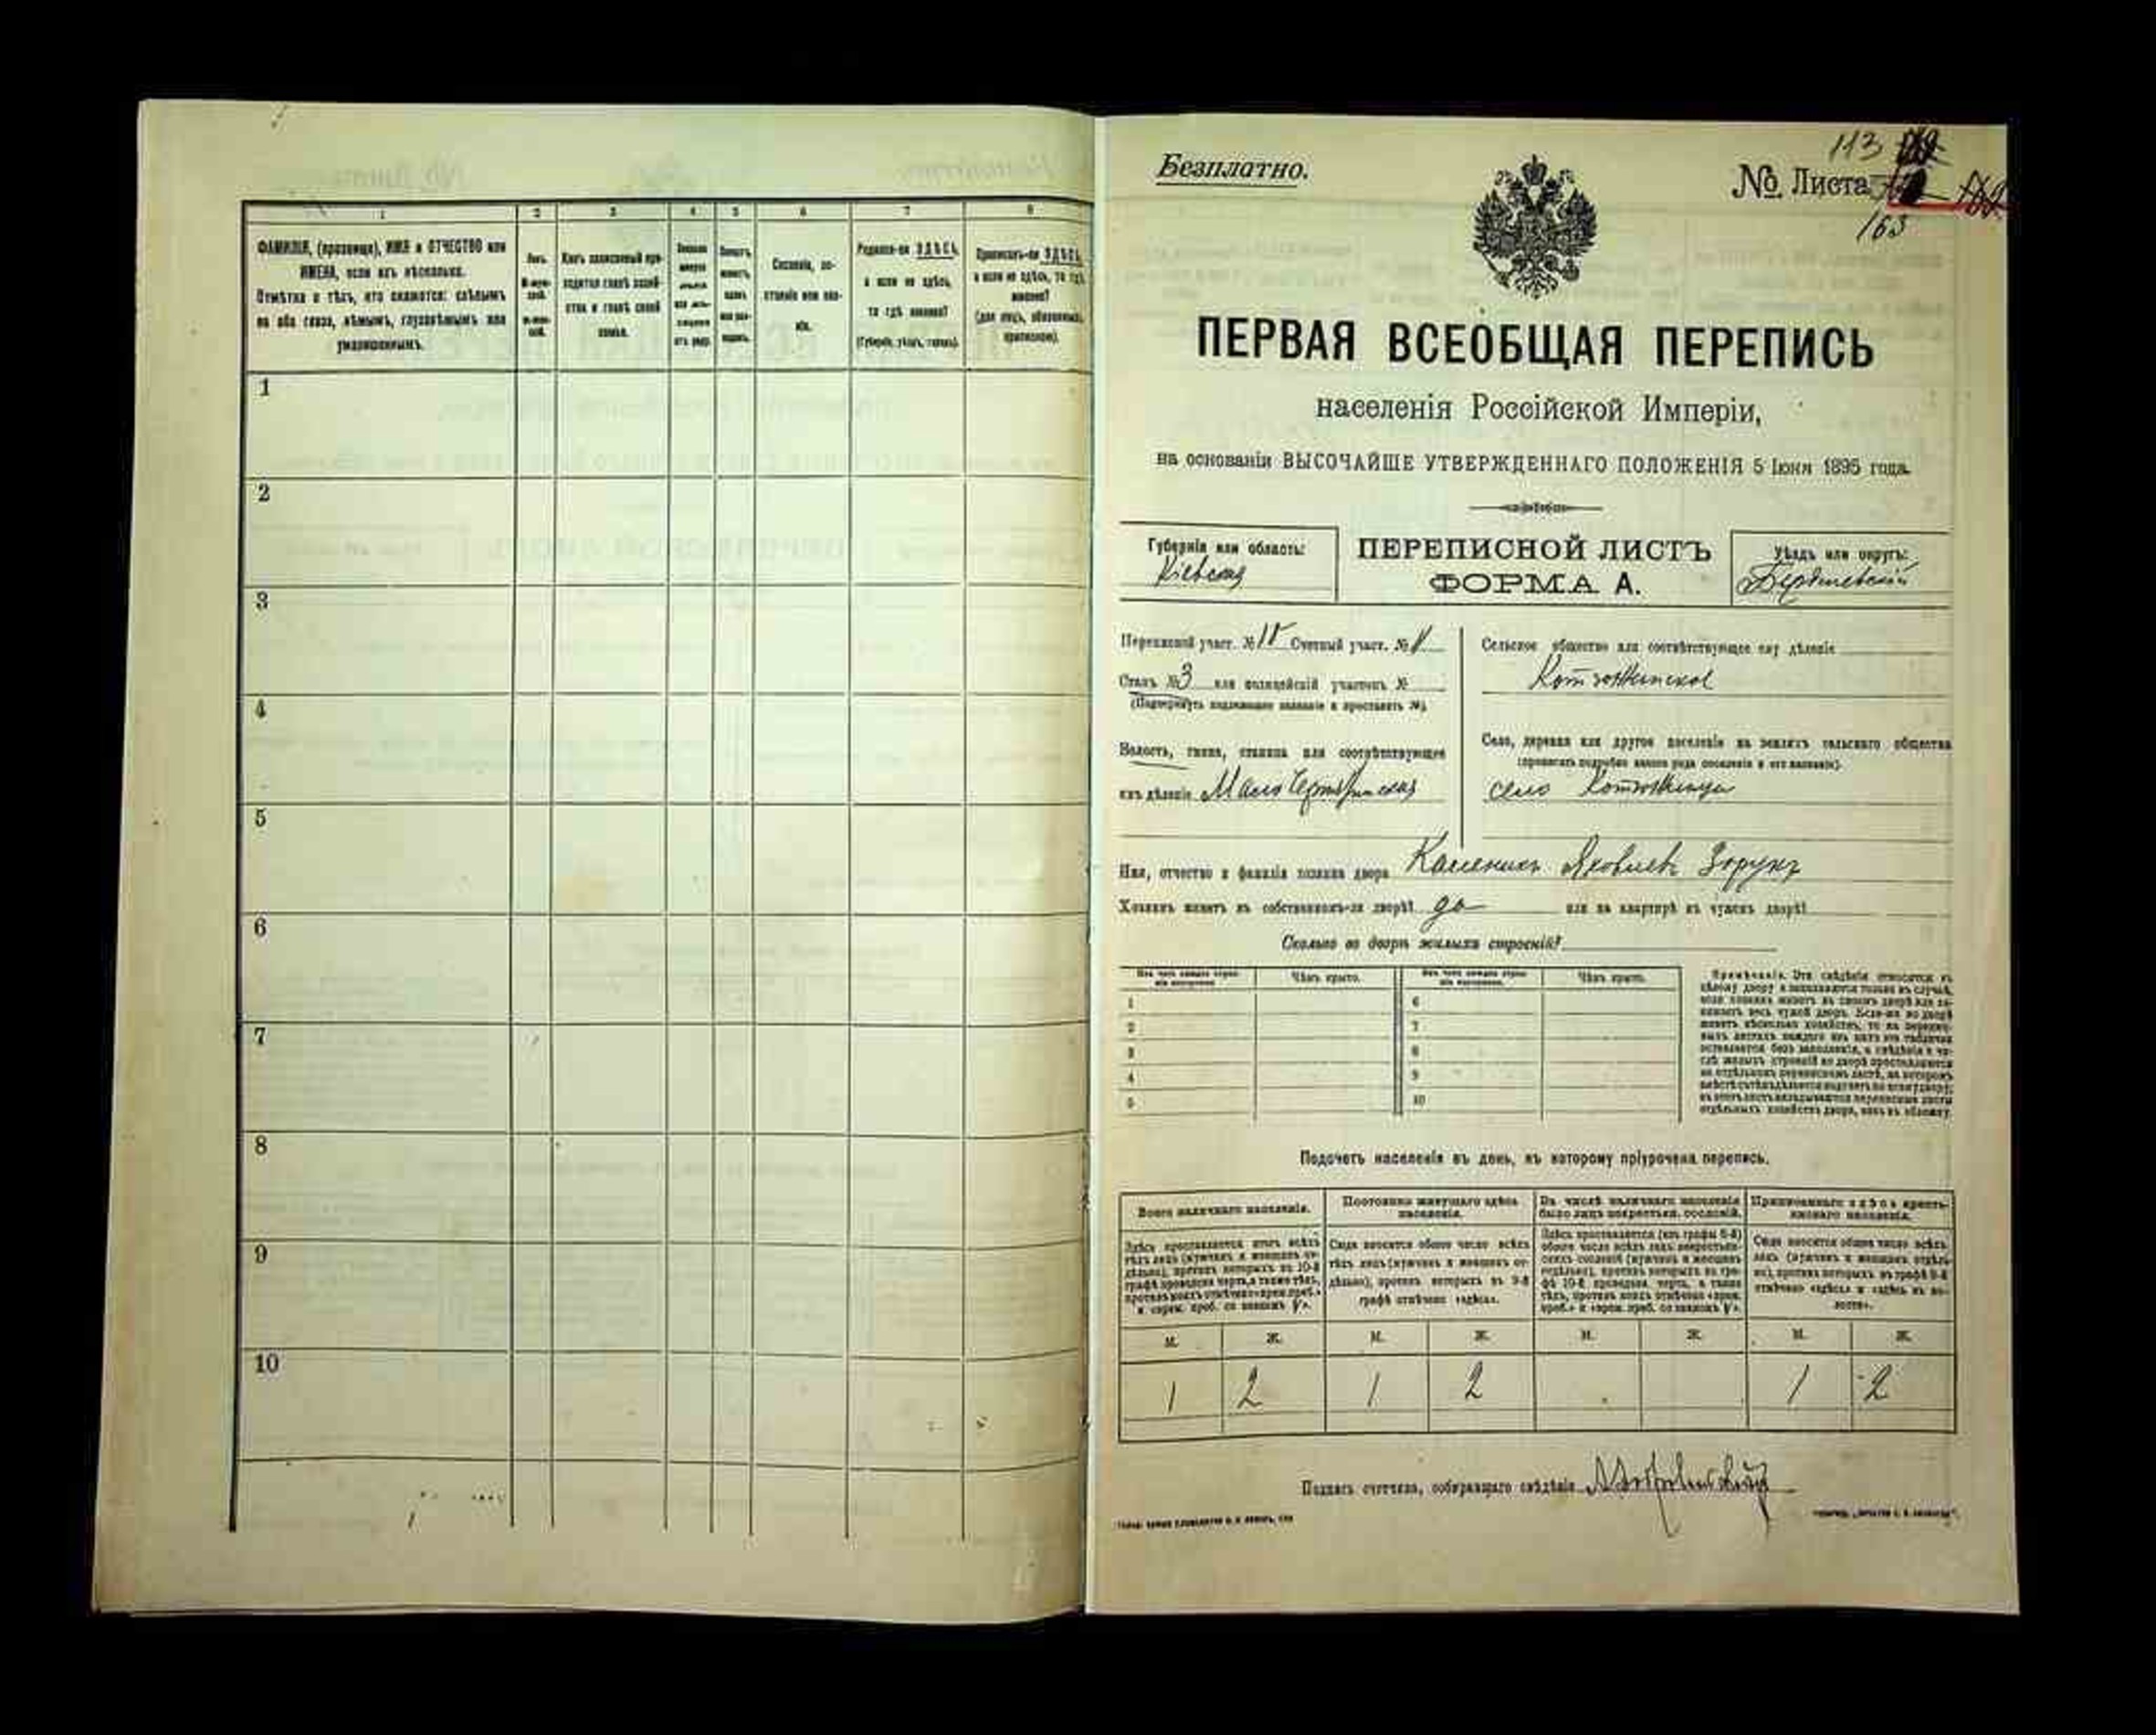 1 2 3 4 5 6 7 8
ФАМИЛІЯ, (прозвище), ИМЯ и ОТЧЕСТВО или
ИМЕНА, если ихъ нѣсколько.
Отмѣтка о тѣхъ, кто окажется: слѣпымъ
на оба глаза, нѣмымъ, глухонѣмымъ или
умалишеннымъ.
Какъ записанный при-
ходится главѣ хозяй-
ства и главѣ своей
семьи.
Сословіе, со-
стояніе или зва-
ніе.
Родился-ли ЗДѢСЬ,
а если не здѣсь,
то гдѣ именно?
(Губернія, уѣздъ, городъ).
Приписанъ-ли ЗДѢСЬ,
а если не здѣсь, то гдѣ
именно?
(для лицъ, обязанныхъ
припискою).
1
2
3
4
5
6
7
8
9
10
Безплатно.
113
№ Листа
163
ПЕРВАЯ ВСЕОБЩАЯ ПЕРЕПИСЬ
населенія Россійской Имперіи,
на основаніи ВЫСОЧАЙШЕ УТВЕРЖДЕННАГО ПОЛОЖЕНІЯ 5 Іюня 1895 года.
Губернія или область:
Кіевская
ПЕРЕПИСНОЙ ЛИСТЪ
ФОРМА А.
Уѣздъ или округъ:
Бердичевскій
Переписной участ. № Счетный участ. №
Станъ № 3 или полицейскій участокъ №
(Подчеркнуть надлежащее названіе и проставить №).
Волость, гмина, станица или соотвѣтствующее
имъ дѣленіе
Сельское общество или соотвѣтствующее ему дѣленіе
Село, деревня или другое поселеніе на земляхъ сельскаго общества
(прописать подробно какого рода поселеніе и его названіе).
село
Имя, отчество и фамилія хозяина двора Каленикъ Яковлевъ
Хозяинъ живетъ въ собственномъ-ли дворѣ? да или на квартирѣ въ чужомъ дворѣ?
Сколько во дворѣ жилыхъ строеній?
Изъ чего каждое строе-
ніе построено.
Чѣмъ крыто.
Изъ чего каждое строе-
ніе построено.
Чѣмъ крыто.
1 6
2 7
3 8
4 9
5 10
Примѣчаніе. Эти свѣдѣнія относятся къ
цѣлому двору и заполняются только въ случаѣ,
если хозяинъ живетъ въ своемъ дворѣ или за-
нимаетъ весь чужой дворъ. Если-же во дворѣ
живетъ нѣсколько хозяйствъ, то на перепис-
ныхъ листахъ каждаго изъ нихъ эта табличка
оставляется безъ заполненія, а свѣдѣнія о чи-
слѣ жилыхъ строеній во дворѣ проставляются
на отдѣльномъ переписномъ листѣ, на которомъ
вмѣстѣ съ тѣмъ дѣлается подсчетъ по всему двору;
въ этотъ листъ вкладываются переписные листы
отдѣльныхъ хозяйствъ двора, какъ въ обложку.
Подсчетъ населенія въ день, къ которому пріурочена перепись.
Всего наличнаго населенія.
Постоянно живущаго здѣсь
населенія.
Въ числѣ наличнаго населенія
было лицъ некрестьян. сословій.
Приписаннаго здѣсь кресть-
янскаго населенія.
Здѣсь проставляется итогъ всѣхъ
тѣхъ лицъ (мужчинъ и женщинъ от-
дѣльно), противъ которыхъ въ 10-й
графѣ проведена черта, а также тѣхъ,
противъ коихъ отмѣчено «врем. преб.»
и «врем. преб. со знакомъ V».
Сюда вносится общее число всѣхъ
тѣхъ лицъ (мужчинъ и женщинъ от-
дѣльно), противъ которыхъ въ 9-й
графѣ отмѣчено «здѣсь».
Здѣсь проставляется (изъ графы 6-й)
общее число всѣхъ лицъ некрестьян-
скихъ сословій (мужчинъ и женщинъ
отдѣльно), противъ которыхъ въ гра-
фѣ 10-й проведена черта, а также
тѣхъ, противъ коихъ отмѣчено «врем.
преб.» и «врем. преб. со знакомъ V».
Сюда вносится общее число всѣхъ
лицъ (мужчинъ и женщинъ отдѣль-
но), противъ которыхъ въ графѣ 8-й
отмѣчено «здѣсь» и «здѣсь въ во-
лости».
М. Ж. М. Ж. М. Ж. М. Ж.
1 2 1 2 1 2
Подпись счетчика, собиравшаго свѣдѣнія